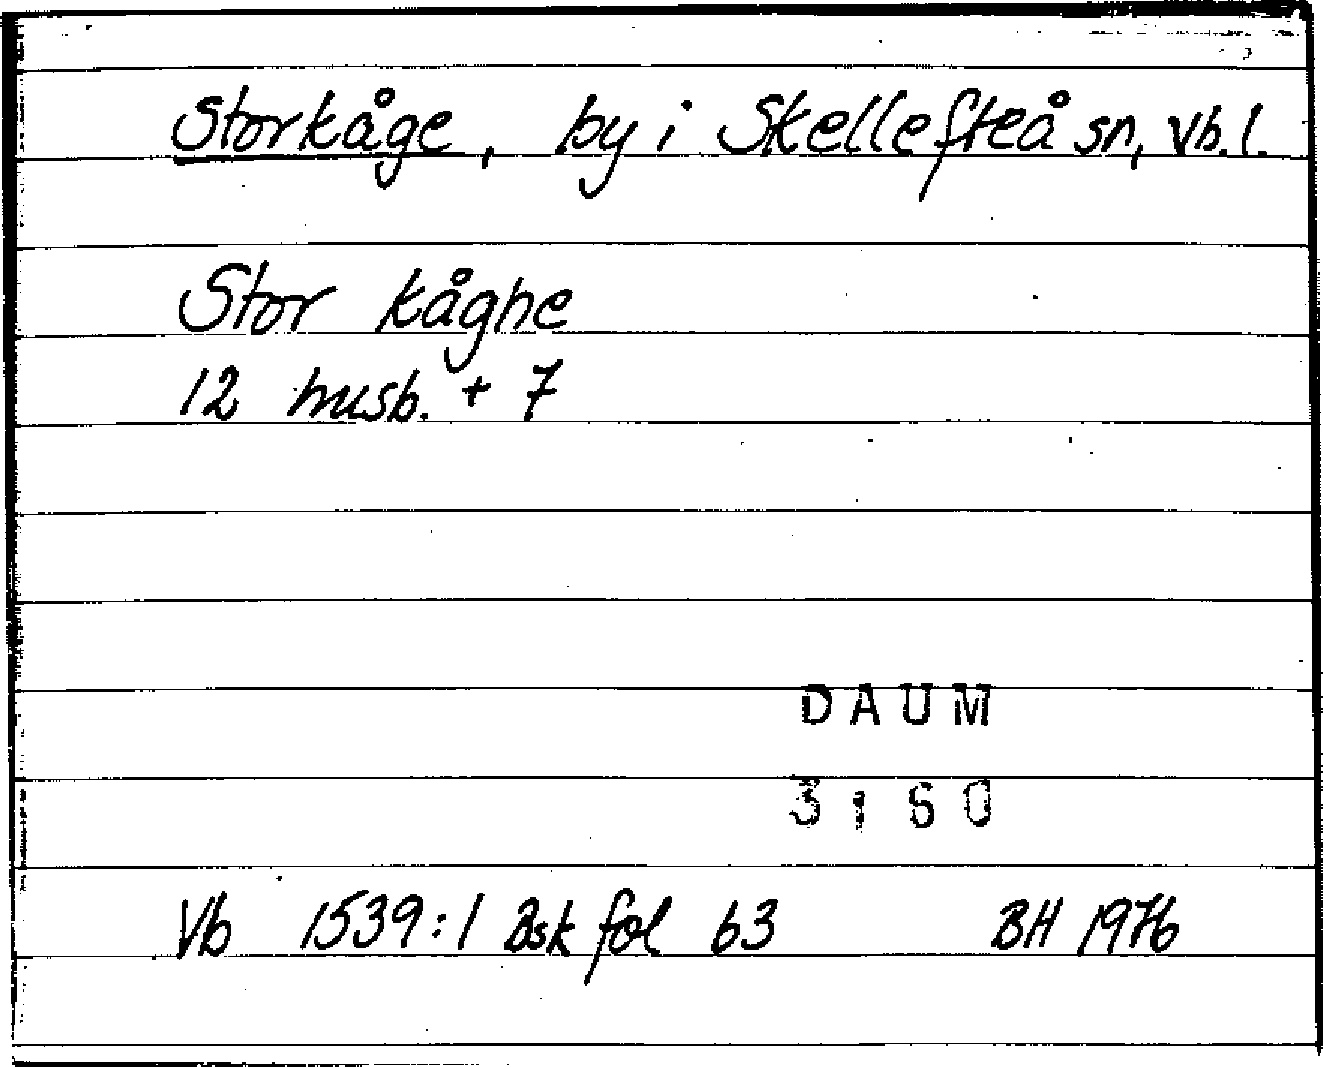 Storkåge, by i Skellefteå sn, Vb.l.
Stor kåghe
12 husb. + 7
DAUM
3:60
Vb 1539:1 Bsk fol 63 BH 1976